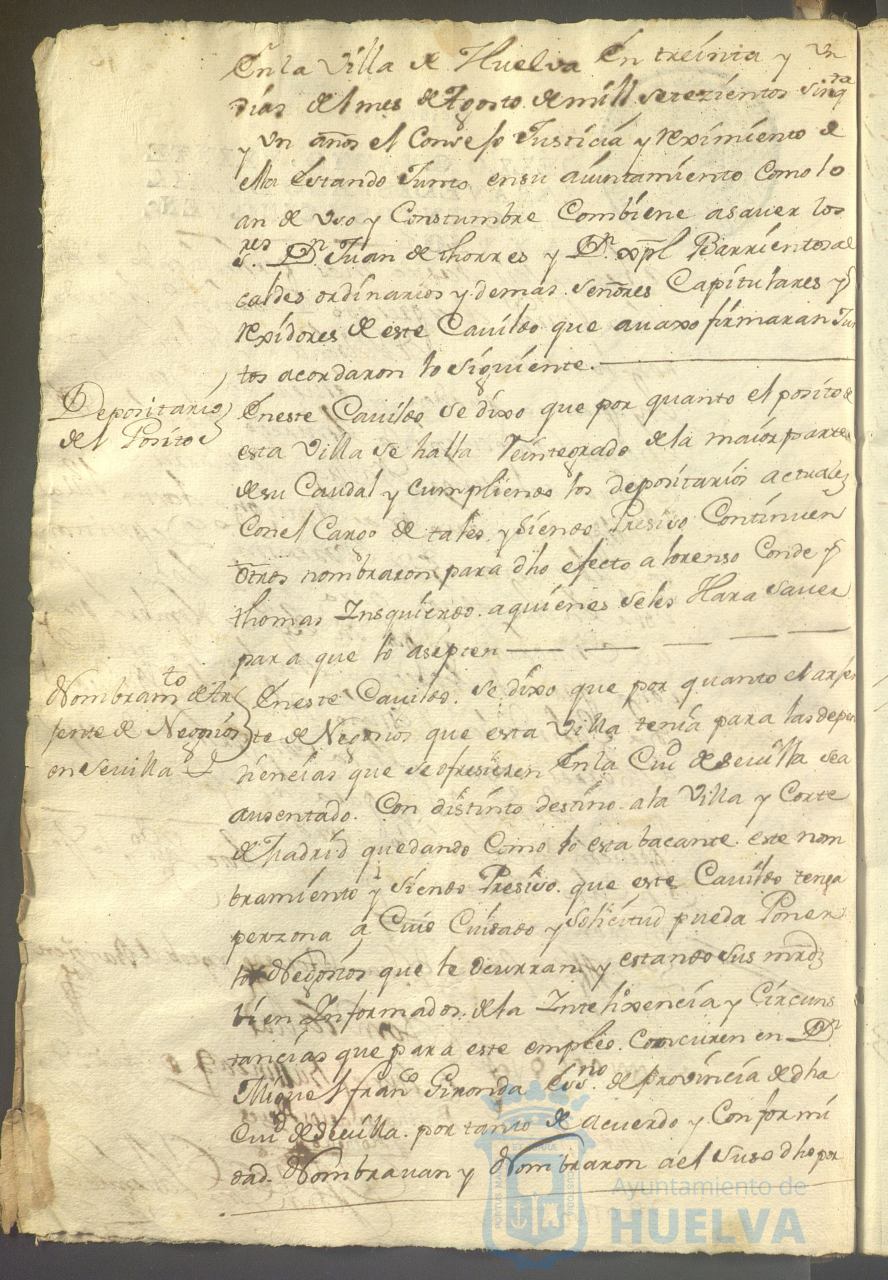 En la Villa de Huelva En treinta y un
dias del mes de Agosto de mill setezientos sinq.ta
y un años el Consejo Justicia y reximiento de
ella Estando Junto en su aiuntamiento como lo
an de uso y Constumbre Combiene a saver los
s.res Dn Juan de thorres y Dn xpl Barrientos al
caldes ordinarios y demas señores Capitulares y
rexidores de este Cavildo que avaxo firmaran Jun
tos acordaron lo siguiente.
Depositarios
del Posito
En este Cavildo se dixo que por quanto el posito de
esta Villa se halla Reintegrado de la maior parte
de su Caudal y cumpliendo los depositarios actuales
con el Cargo de tales, y siendo Presiso Continuen
otros nombraron para dho efecto a lorenso Conde y
thomas Insquierdo. a quienes seles Hara saver
para que lo asepten
Nombram.to de Ax
jente de Negosios
en Sevilla
En este Cavildo. se dixo que por quanto el axjen
te de Negosios que esta Villa tenia para las depen
diencias que se ofresiesen En la Ciud de Sevilla sea
ausentado. Con distinto destino. a la Villa y Corte
de Madrid quedando Como lo esta bacante este nom
bramiento y siendo Presiso. que este Cavildo tenga
perzona a Cuio Cuidado y solicitud pueda Poner
los Negosios que le ocurran y estando sus mrdz
bien Informados de la Intelixencia y Circuns
tancias que para este empleo. Concuren en Dn
Miguel franco Gironda Ess.no de provincia de dha
Ciud de Sevilla. por tanto de acuerdo y Conformi
dad. Nombravan y Nombraron a el suso dho por
Ayuntamiento de
HUELVA